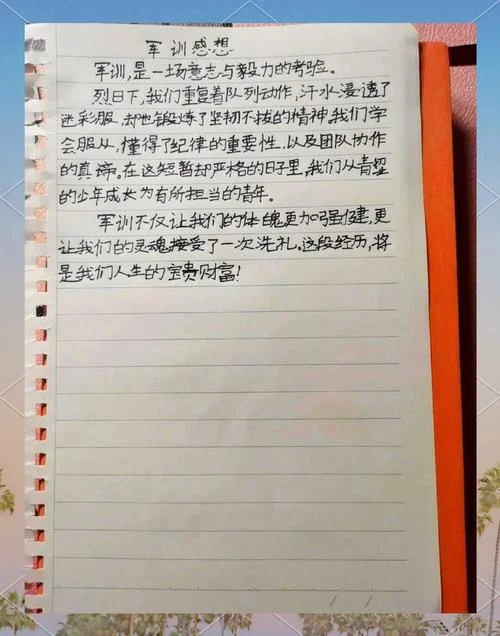 军训感想
军训,是一场意志与毅力的考验。
烈日下,我们重复着队列动作,汗水浸透了
迷彩服,却也锻炼了坚韧不拔的精神。我们学
会服从,懂得了纪律的重要性,以及团队协作
的真谛。在这短暂却严格的日子里,我们从青涩
的少年成长为有所担当的青年。
军训不仅让我们的体魄更加强健,更
让我们的灵魂接受了一次洗礼。这段经历,将
是我们人生的宝贵财富!